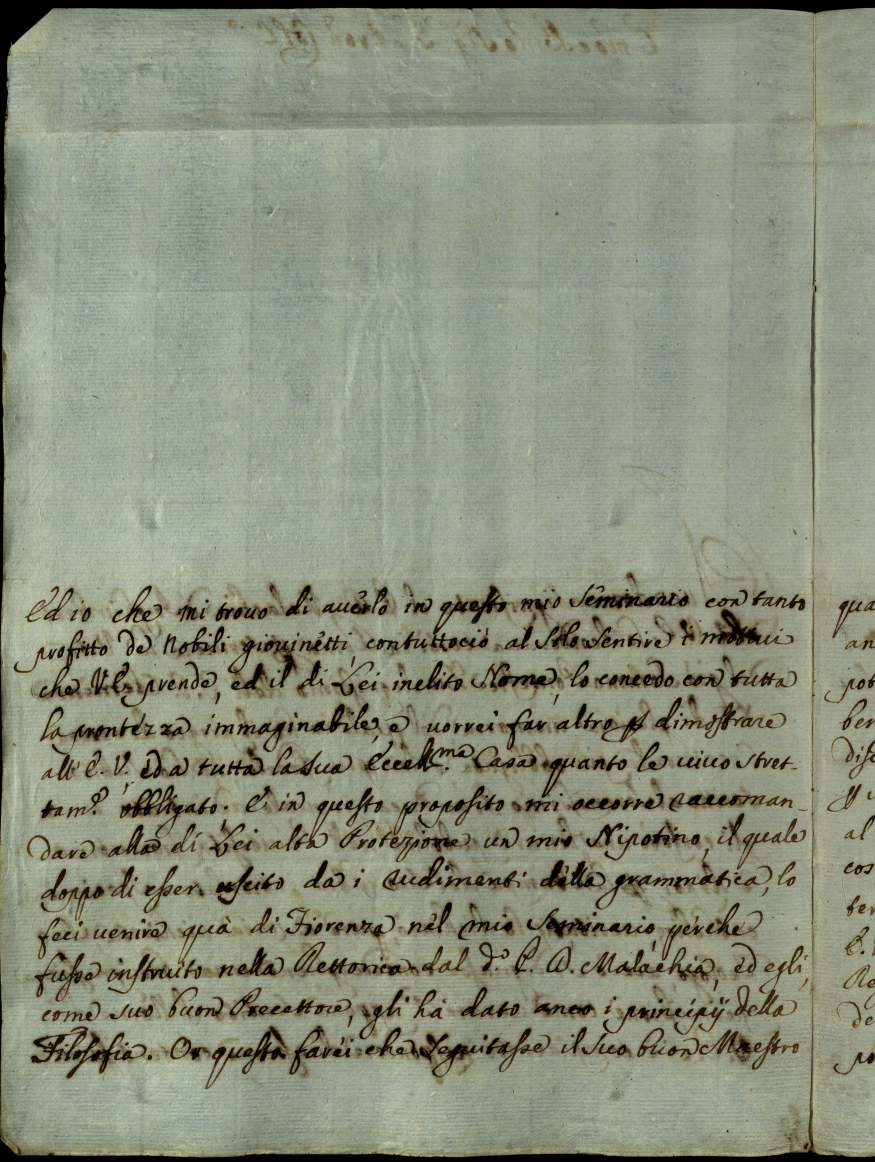 Ed io che mi trovo di averlo in questo mio Seminario con tanto
profitto de Nobili giovinetti contuttociò al solo sentire i motivi
che V.E. prende, ed il di Lei inclito Nome, lo concedo con tutta
la prontezza immaginabile, e vorrei far altro p dimostrare
all' E. V. ed a tutta la sua Eccell.ma Casa quanto le vivo stret-
tam.e obbligato. E in questo proposito mi occorre raccoman-
dare alla di Lei alta Protezione un mio Nipotino, il quale
doppo di esser uscito da i rudimenti della grammatica, lo
feci venire quà di Fiorenza nel mio Seminario perche
fusse instruito nella Rettorica dal d.o P. D. Malachia, ed egli,
come suo buon Precettore, gli hà dato anco i principij della
Filosofia. Or questo farei che seguitasse il suo buon Maestro
qua
an
pot
ber
disc
al
cos
ter
E.
Re
de
po